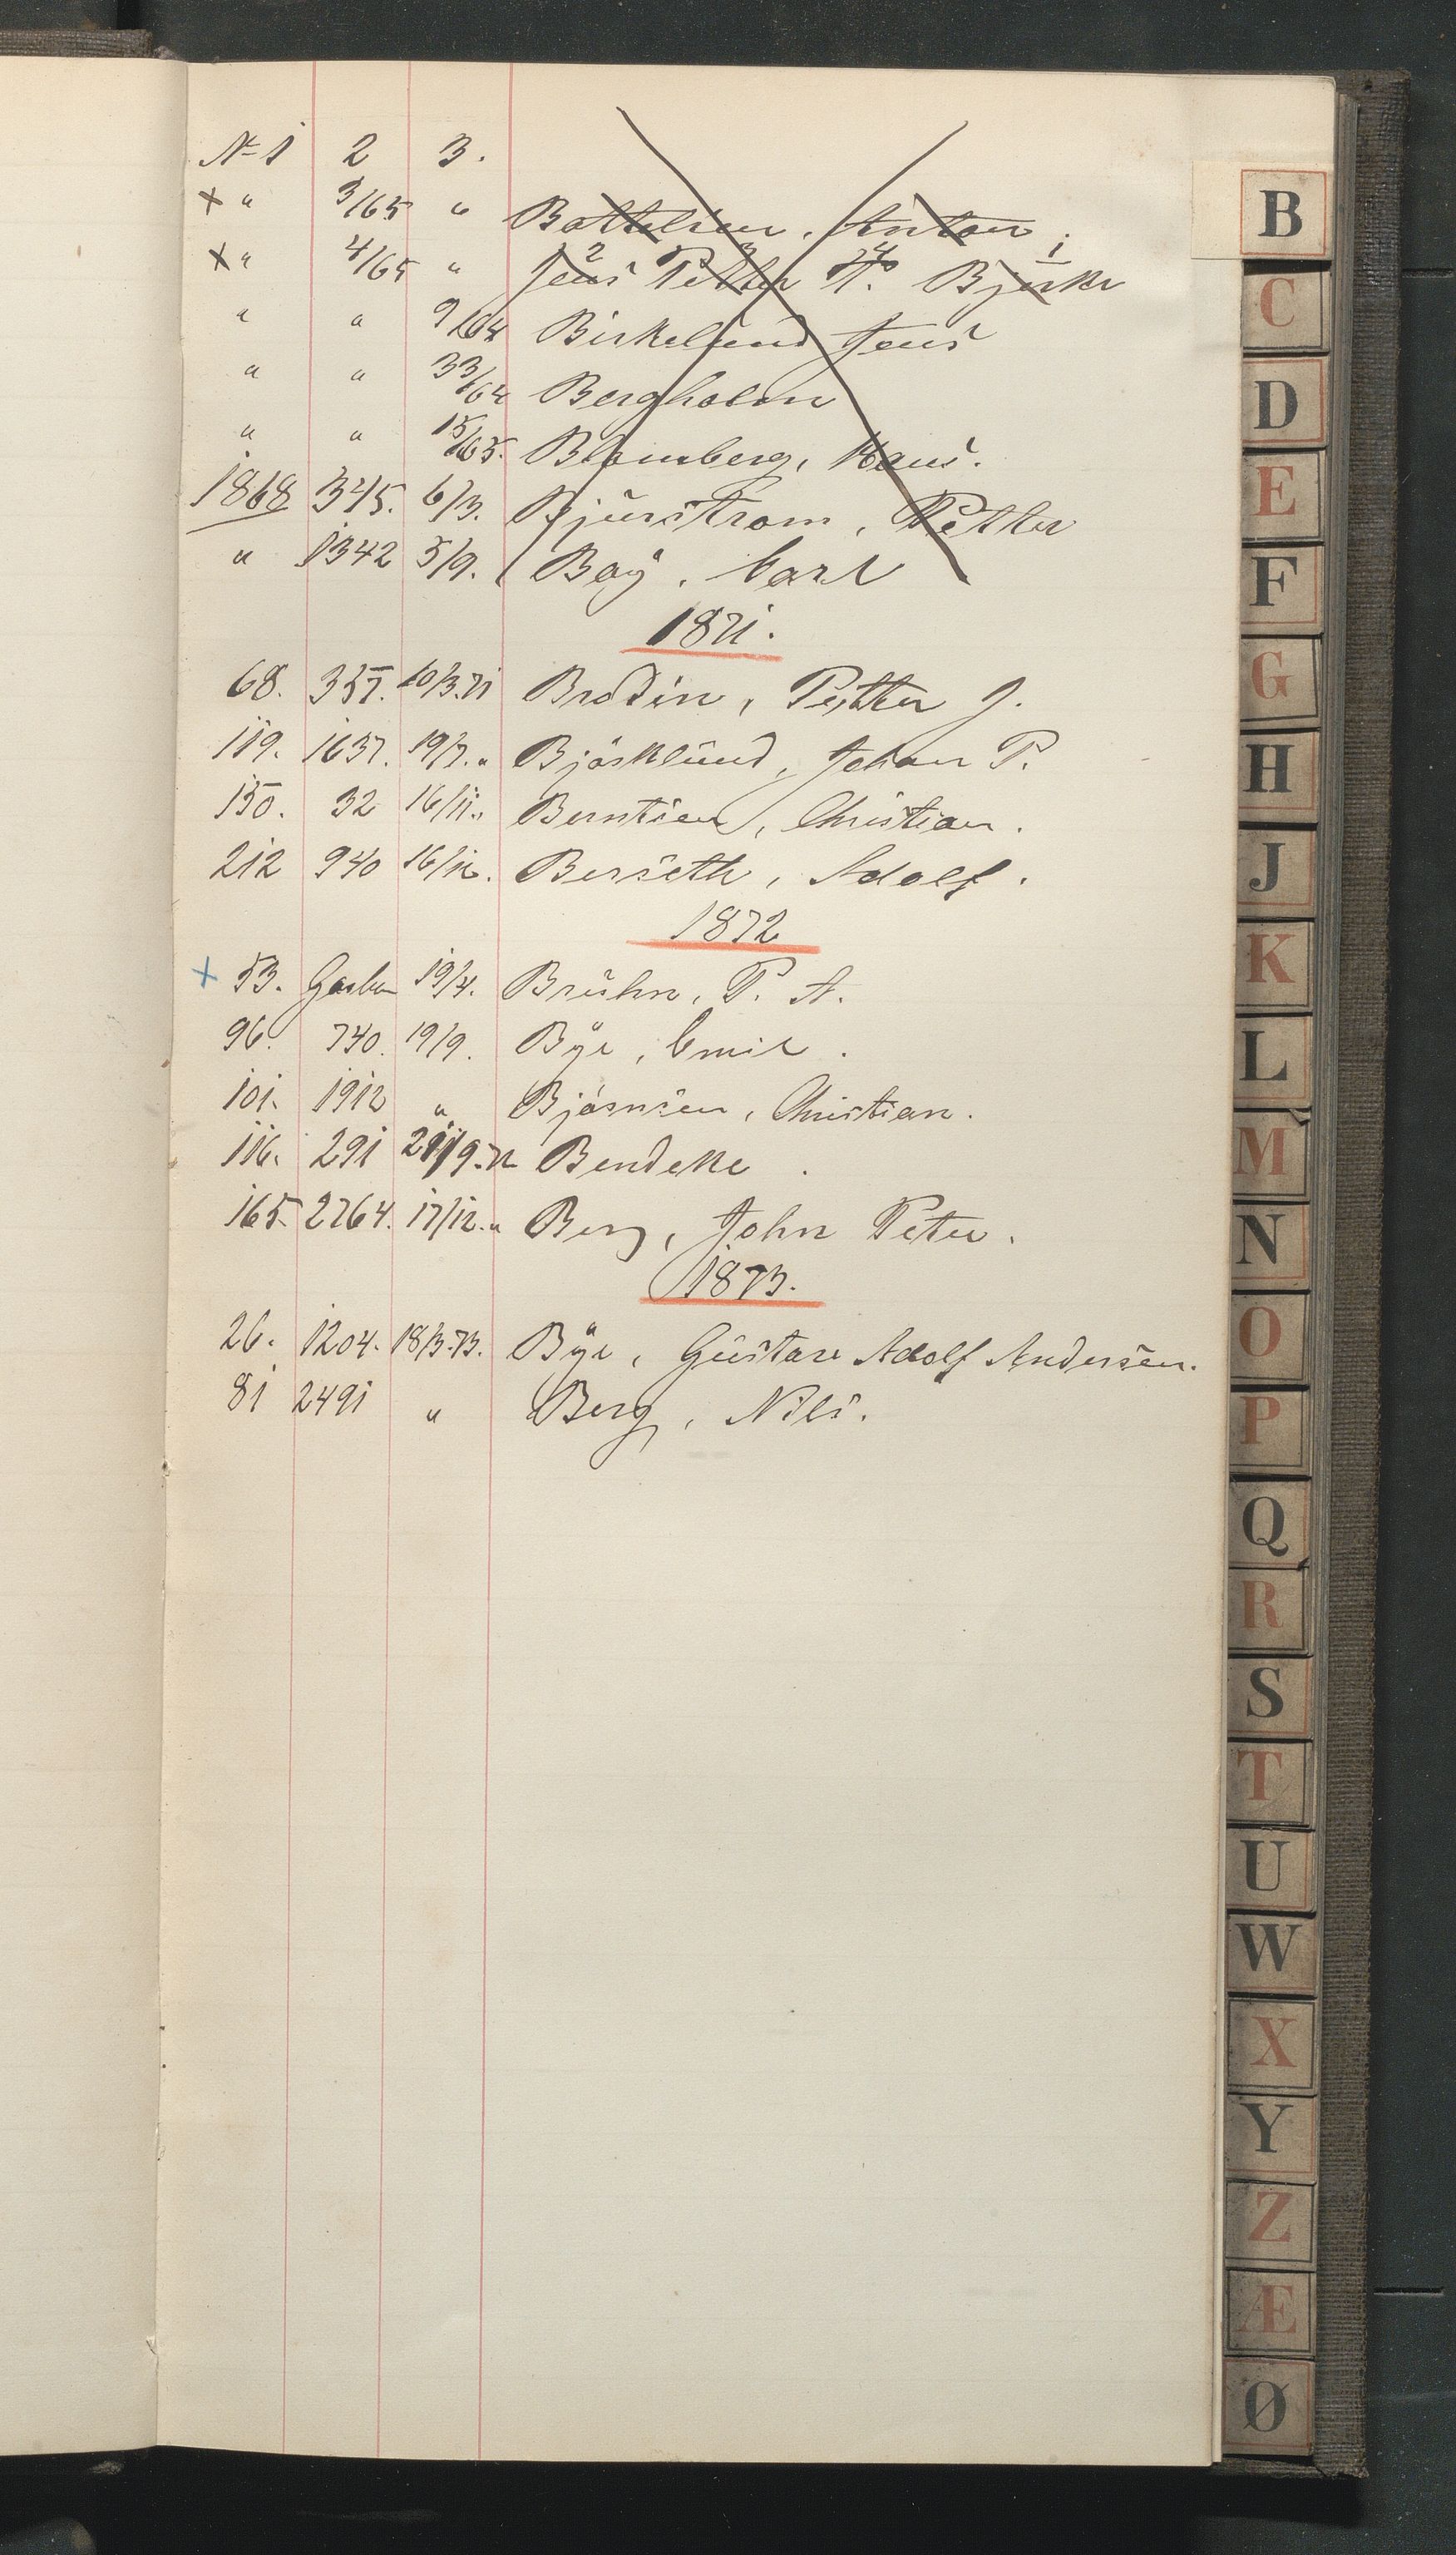 No 1 2 3.
× " 3/65 " Bottelsen, Anton
× " 4/65 " Jens Petter A. Bjerke
2 3 4 1
" " 9/64 Birkelund Jens
" " 33/64 Bergholm
" " 15/65. Blomberg, Hans.
1868 345. 6/3. Bjurstrom, Petter
" 1342 5/9. Boy, Carl
1871.
68. 357. 10/3.71 Brodin, Petter J.
119. 1637. 19/7. " Bjørklund, Johan P.
150. 32 16/11. " Berntsen, Christian.
212 940 16/12. Berseth, Adolf.
1872
+ 53. 19/4. Bruhn, P. A.
96. 740. 19/9. Bÿe, Emil.
101. 1912 " Bjørnsen, Christian.
116. 291 /9.72 Bendeke.
165. 2764. 17/12. " Berg, John Peter.
1873.
26. 1204. 18/3.73. Bÿe, Gustave Adolf Andersen.
81 2491 " Berg, Nils.
B
C
D
E
F
G
H
J
K
L
M
N
O
P
Q
R
S
T
U
W
X
Y
Z
Æ
Ø